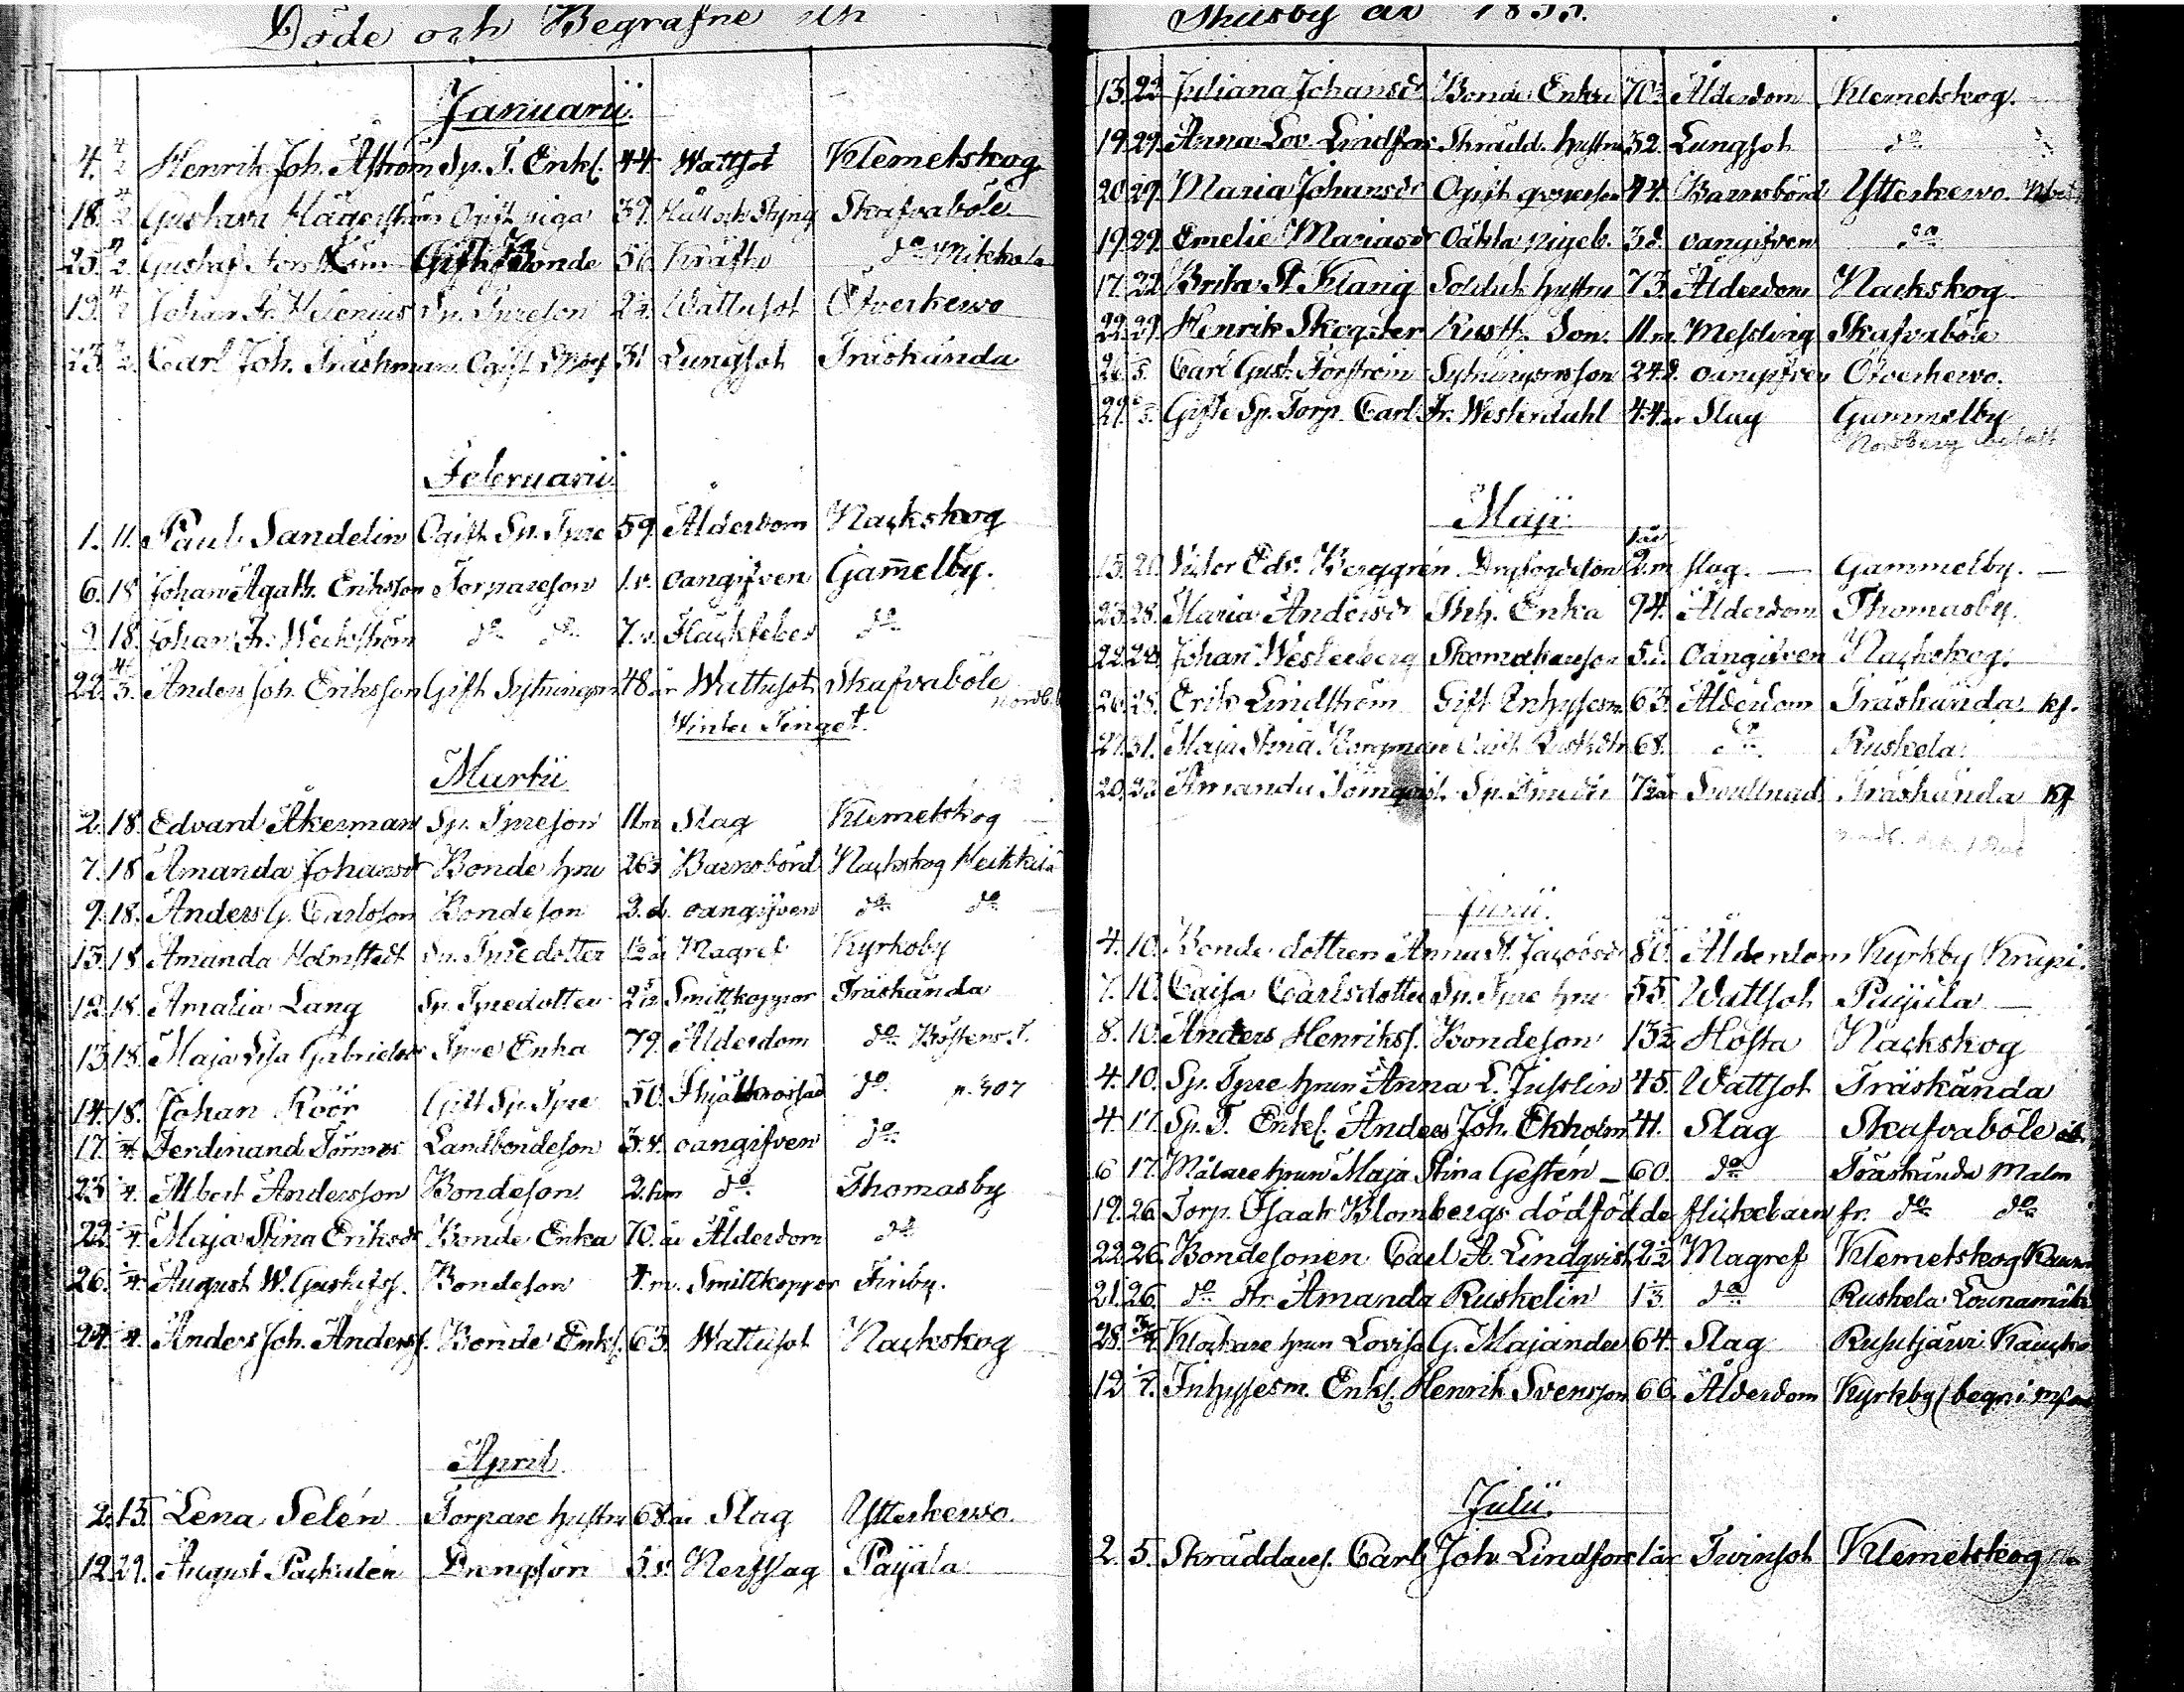 Döde och Begrafne uti
Januarii.
4. 4/2 Henrik Joh. Åström Sp. T. Enkl. 44. Wattsot Klemetskog
18. 4/2 Gustava Hägerström Ogift piga 39. Håll och Styng Skafvaböle
25. 4/2 Gustaf Forsström Gift Bonde 56 Kräfta do Mikkola
19. 4/2 Johan Fr. Helenius Sp. Tpreson 24. Wattusot Öfverkewo
23. 4/2 Carl Joh. Träskman Ogift 31 Lungsot Träskända
Februarii
1. 11. Paul Sandelin Ogift Sp. Tpre 59. Ålderdom Nackskog
6. 18. Johan Agath. Eriksson Torpareson 1.v. oangifven Gam̅elby.
9. 18. Johan Fr. Weckström do do 7.v. Fläckfeber do
22. 4/3. Anders Joh. Eriksson Gift Sytningsm 48 år Wattusot Skafvaböle
Winter Tinget.
Martii
2. 18. Edvard Åkerman Sp. Tpreson 11 m Slag Klemetskog
7. 18. Amanda Johansdr Bonde hru 26 Barnsbörd Nackskog Heikkilä
9. 18. Anders G. Carlsson Bondeson 3.d. oangifven do do
15. 18. Amanda Holmstedt Sp. Tpredotter 1½ år Magref Kyrkoby
12. 18. Amalia Lang Sp. Tpredotter 2 Smittkoppor Träskända
13. 18. Maja Lisa Gabrielsdr Tpre Enka 79. Ålderdom do
14. 18. Johan Röör Gift Sp. Tpre 50. do n. 407
17. /4. Ferdinand Törnros Landbondeson 3. oangifven do
23. /4. Albert Andersson Bondeson. 2. do Thomasby
22. /4. Maja Stina Eriksdr Bonde Enka 70. år Ålderdom do
26. /4. August W. Gustafss. Bondeson 4. m. Smittkoppor Finby.
24. /4. Anders Joh. Anderss. Bonde Enkl. 63. Wattusot Nackskog
April
2. 15. Lena Selén Torpare hustru 68 år Slag Ytterkewo.
12. 29. August Packalén Drengson 5. Nerfslag Pajala
Husby år 1855.
13. 22. Juliana Johansdr Bonde Enka 70 Ålderdom Klemetskog.
19. 29. Anna Lov. Lindfors Skrädd. hustru 32. Lungsot do
20. 29. Maria Johansdr Ogift qvpersson 44. Barnsbörd Ytterkewo.
19. 29. Emelie Mariasdr Oäkta pigeb. 3 d. oangifven do
17. 22. Brita St. Klang Soldats hustru 73. Ålderdom Nackskog
22. 29. Henrik Skogster Rusth. Son. 11 m. Messling Skafvaböle
26. /5. Carl Gust. Forström Sytningsmsson 24 d. oangifven Öfverkewo.
29. /5. Gifte Sp. Torp. Carl Fr. Westerdahl 44 år Slag Gammelby
Maji.
15. 20. Victor Edv. Berggrén 2. m slag. Gammelby.
23. 28. Maria Andersdr Inh. Enka 94. Ålderdom Thomasby.
22. 28. Johan Westerberg Skomakareson 5. Oangifven Nackskog.
26. 28. Erik Lindström Gift Inhysesm. 63. Ålderdom Träskända kf.
27. 31. Maja Stina Bergman 68. do Ruskela.
20. 22. Amanda Törnqvist Sp. 7½ år Svullnad Träskända Kf
Junii.
4. 10. Bonde dottren Anna St. Jacobsdr 80. Ålderdom Kyrkby Krapi.
7. 10. Caisa Carlsdotter Sp. Tpre hru 55. Wattsot Pajula
8. 10. Anders Henrikss. Bondeson 13½ Hosta Nackskog
4. 10. Sp. Tpre hrun Anna L. Juslin 45. Wattsot Träskända
4. 17. Sp. T. Enkl. Anders Joh. Ekholm 41. Slag Skafvaböle
6 17. Målare hrun Maja Stina Gestén 60. do Träskända Malm
19. 26 Torp. Isaak Blombergs dödfödde flickebarn fr. do do
22. 26. Bondesonen Carl A. Lindqvist 2½ Magref Klemetskog
21. 26. do dtr Amanda Ruskelin 1 do Ruskela Lounamäki
28. /7. Klockare hrun Lovisa G. Majander 64. Slag Rusutjärvi
12 /7. Inhysesm. Enkl. Henrik Svensson 66. Ålderdom Kyrkby (begr. i
Julii.
2. 5. Skräddares. Carl Joh. Lindfors 1 år Tvinsot Klemetskog